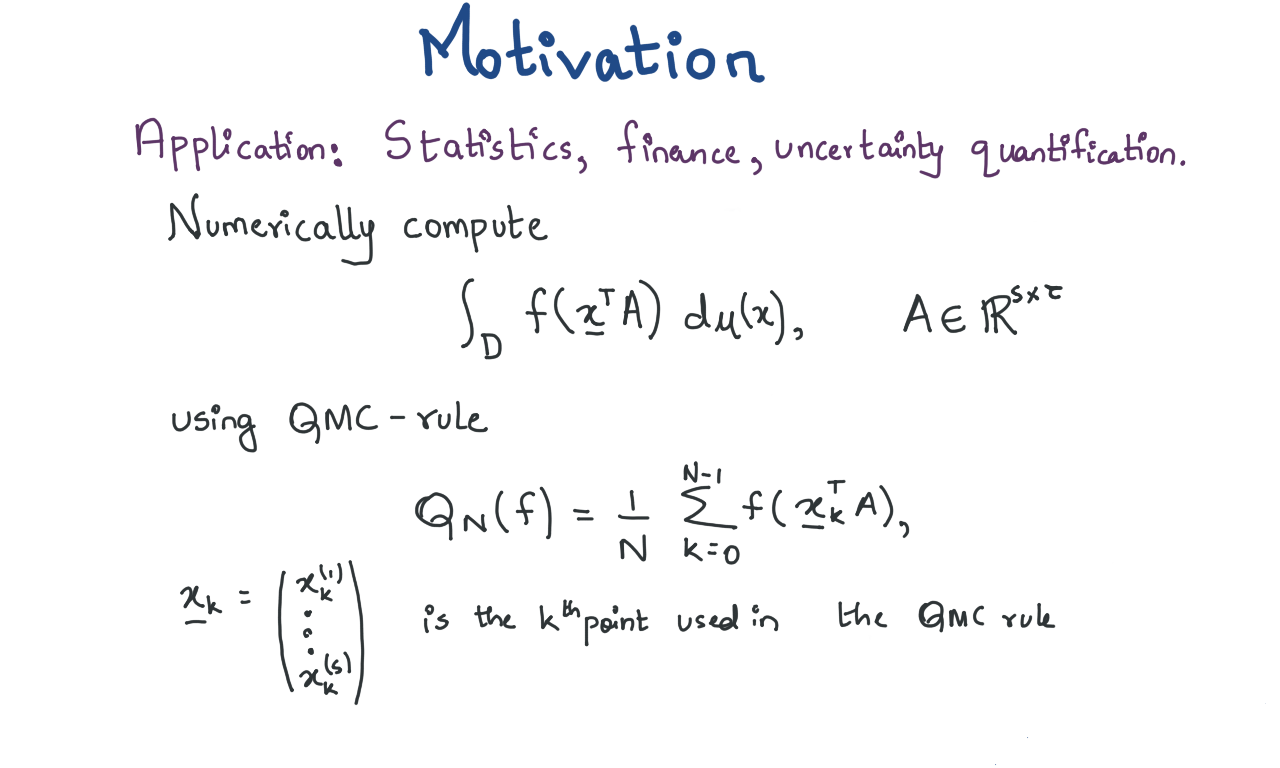 Motivation
Application: Statistics, finance, uncertainty quantification.
Numerically compute
∫_D f(x̲^T A) dμ(x), A ∈ ℝ^{s×τ}
using QMC-rule
Q_N(f) = 1/N ∑_{k=0}^{N-1} f(x̲_k^T A),
x̲_k = (x_k^{(1)} ⋮ x_k^{(s)}) is the k^{th} point used in the QMC rule